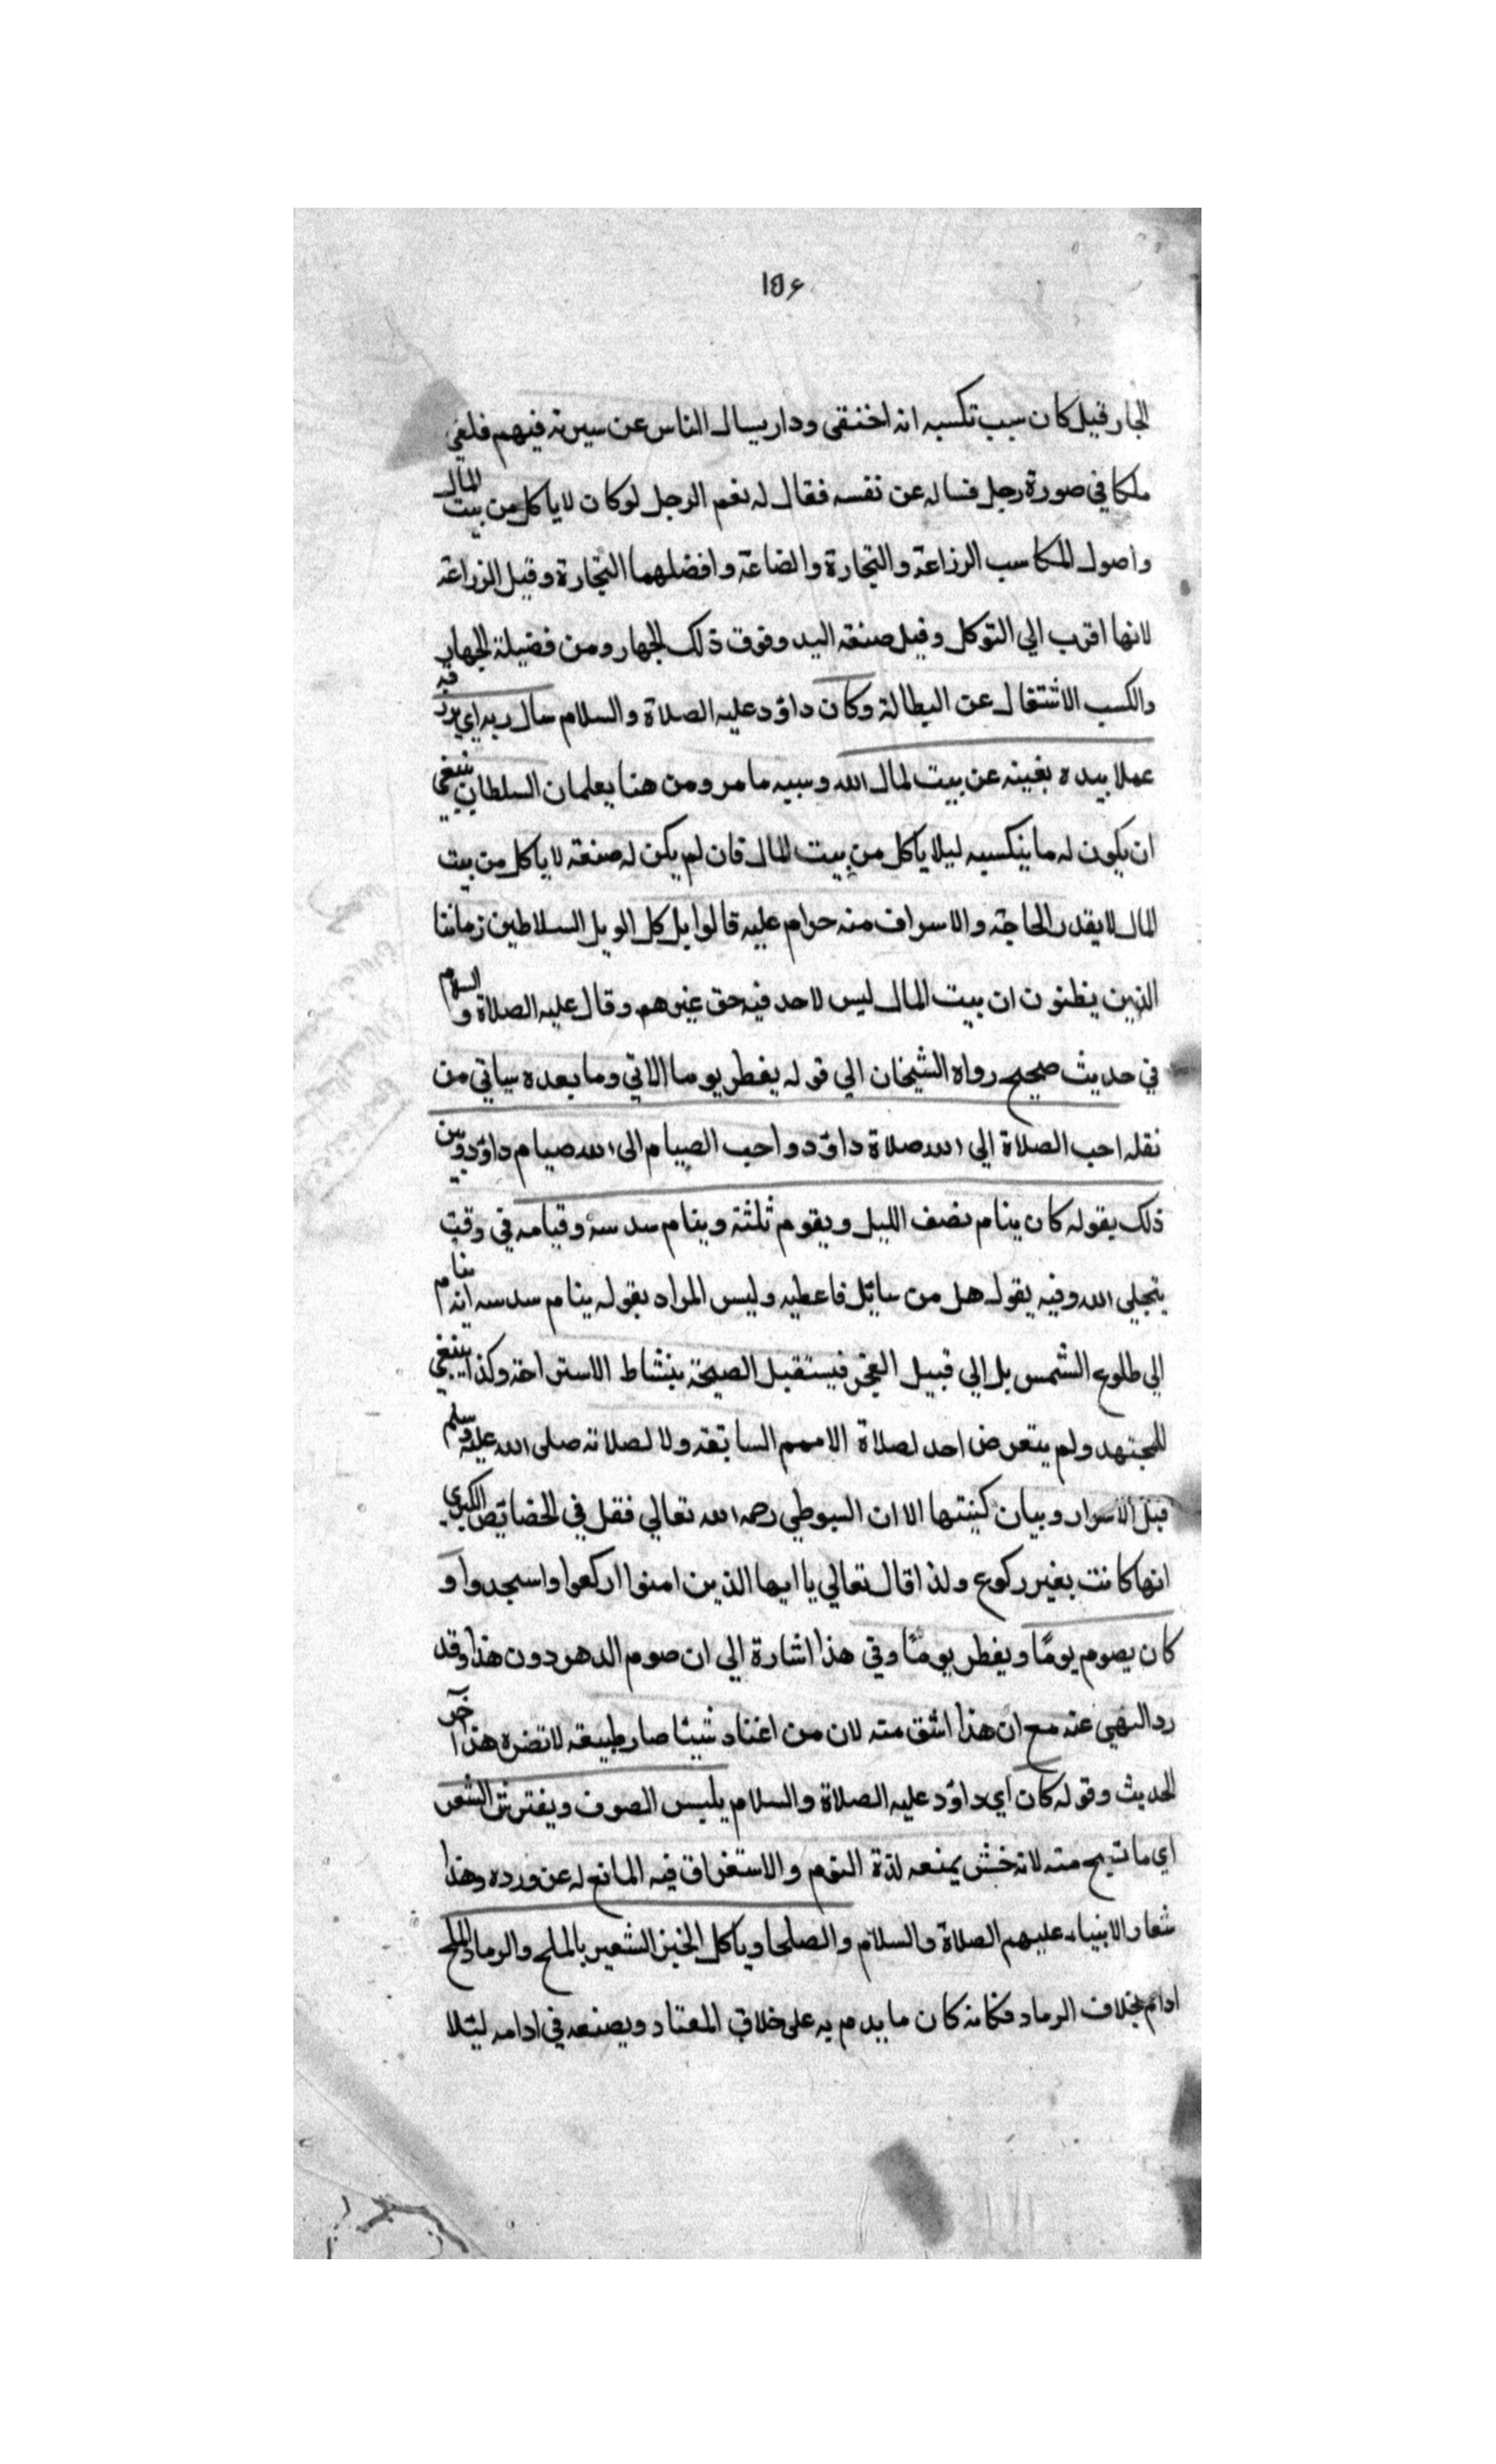 ١٥٦
الجار قيل كان سبب تكسبه انه اختفى ودار يسال الناس عن سيرته فيهم فلقي
ملكا في صورة رجل فساله عن نفسه فقال له نعم الرجل لو كان لا ياكل من بيت المال
واصول المكاسب الزراعة والتجارة والضاعة وافضلهما التجارة وقيل الزراعة
لانها اقرب الي التوكل وقيل صنعة اليد وفوق ذلك الجهار ومن فضيلة الجهار
والكسب الاشتغال عن البطالة وكان داؤد عليه الصلاة والسلام سال ربه اي يرزقه
عملا بيده يغينه عن بيت لمال الله وسببه ما مر ومن هنا يعلم ان السلطان ينبغي
ان يكون له ما يتكسبه ليلا ياكل من بيت المال فان لم يكن له صنعة لا ياكل من بيت
المال لا يقدر الحاجة والاسراف منه حرام عليه قالوا بل كل الويل السلاطين زماننا
الذين يظنون ان بيت المال ليس لاحد فيه حق غيرهم وقال عليه الصلاة والسلام
في حديث صحيح رواه الشيخان الي قوله يفطر يوما الاتي وما بعده سياتي من
نقله احب الصلاة الي الله صلاة داؤد واحب الصيام الى الله صيام داؤد وبين
ذلك بقوله كان ينام نصف الليل ويقوم ثلثة وينام سدسه وقيامه في وقت
يتجلي الله وفيه يقول هل من سايل فاعطيه وليس المراد بقوله ينام سدسه انه ينام
الي طلوع الشمس بل الي قبيل الفجر فيستقبل الصبحة بنشاط الاستراحة وكذا ينبغي
للمجتهد ولم يتعرض احد لصلاة الاممم السابقة ولا لصلاته صلى الله عليه وسلم
قبل الاسرار وبيان كيتها الا ان السيوطي رحمه الله تعالي فقل في الخصايص الكبري
انها كانت بغير ركوع ولذا قال تعالي يا ايها الذين امنوا اركعوا واسجدوا و
كان يصوم يومًا ويفطر يومًا وفي هذا اشارة الي ان صوم الدهر دون هذا وقد
رد النهي عنه مع ان هذا اشق منه لان من اعتاد شيئا صار طبيعة لا تضره هذا آخر
الحديث وقوله كان اي داؤد عليه الصلاة والسلام يلبس الصوف ويفترش الشعر
اي ما نسج منه لانه خشن يمنعه لذة النوم والاستغراق فيه المانع له عن ورده وهذا
شعار الانبياء عليهم الصلاة والسلام والصلحا وياكل الخبز الشعير بالملح والرماد والملح
ادام بخلاف الرماد فكانه كان ما يدم به على خلاف المعتاد ويصنعه في ادامه لئلا